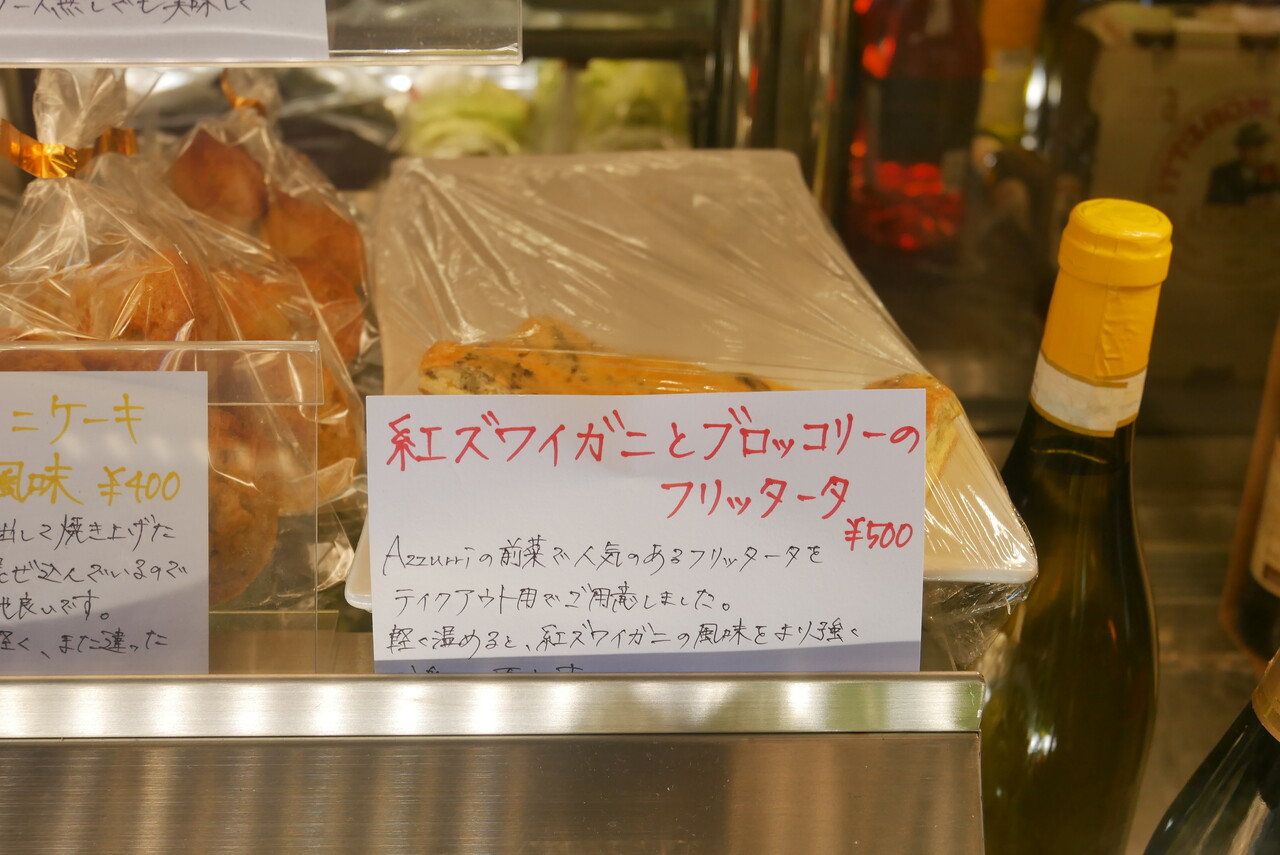 ニケーキ
風味 ¥400
出して焼き上げた
ぜ込んでいるので
地良いです。
軽く、また違った
紅ズワイガニとブロッコリーの
フリッタータ
¥500
Azzurriの前菜で人気のあるフリッタータを
テイクアウト用でご用意しました。
軽く温めると、紅ズワイガニの風味をより強く
MORETTI